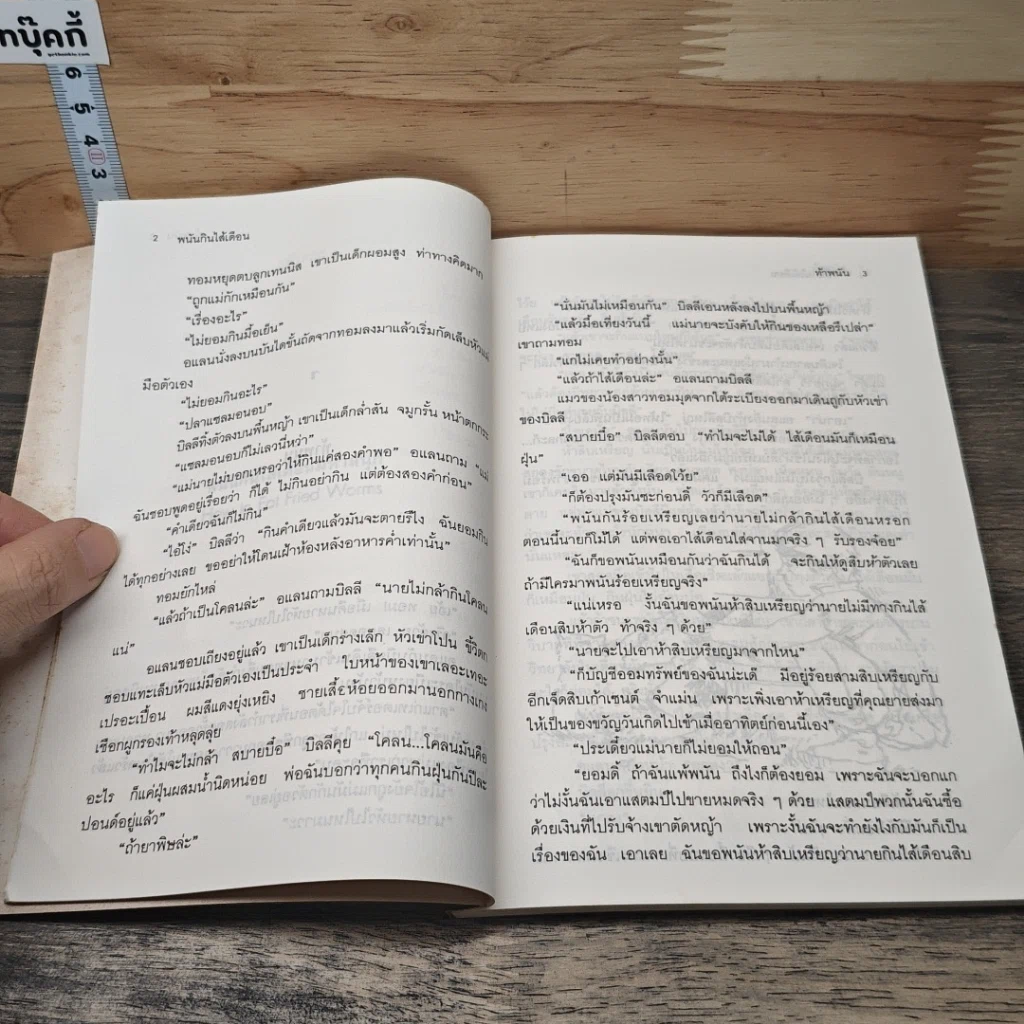 ทบุ๊คกี้
6
5
4
11
3
2 พนันกินไส้เดือน
ทอมหยุดตบลูกเทนนิส เขาเป็นเด็กผอมสูง ท่าทางคิดมาก
“ถูกแม่กักเหมือนกัน”
“เรื่องอะไร”
“ไม่ยอมกินมื้อเย็น”
อแลนนั่งลงบนบันไดขั้นถัดจากทอมลงมาแล้วเริ่มกัดเล็บหัวแม่
มือตัวเอง
“ไม่ยอมกินอะไร”
“ปลาแซลมอนอบ”
บิลลีทิ้งตัวลงบนพื้นหญ้า เขาเป็นเด็กล่ำสัน จมูกรั้น หน้าตกกระ
“แซลมอนอบก็ไม่เลวนี่หว่า”
“แม่นายไม่บอกเหรอว่าให้กินแค่สองคำพอ” อแลนถาม “แม่
ฉันชอบพูดอยู่เรื่อยว่า ก็ได้ ไม่กินอย่ากิน แต่ต้องสองคำก่อน”
“คำเดียวฉันก็ไม่กิน”
“ไอ้โง่” บิลลีว่า “กินคำเดียวแล้วมันจะตายรึไง ฉันยอมกิน
ได้ทุกอย่างเลย ขออย่าให้โดนเฝ้าห้องหลังอาหารค่ำเท่านั้น”
ทอมยักไหล่
“แล้วถ้าเป็นโคลนล่ะ” อแลนถามบิลลี “นายไม่กล้ากินโคลน
แน่”
อแลนชอบเถียงอยู่แล้ว เขาเป็นเด็กร่างเล็ก หัวเข่าโปน ขี้วิตก
ชอบแทะเล็บหัวแม่มือตัวเองเป็นประจำ ใบหน้าของเขาเลอะเทอะ
เปรอะเปื้อน ผมสีแดงยุ่งเหยิง ชายเสื้อห้อยออกมานอกกางเกง
เชือกผูกรองเท้าหลุดลุ่ย
“ทำไมจะไม่กล้า สบายบื๋อ” บิลลีคุย “โคลน...โคลนมันคือ
อะไร ก็แค่ฝุ่นผสมน้ำนิดหน่อย พ่อฉันบอกว่าทุกคนกินฝุ่นกันปีละ
ปอนด์อยู่แล้ว”
“ถ้ายาพิษล่ะ”
ท้าพนัน 3
“นั่นมันไม่เหมือนกัน” บิลลีเอนหลังลงไปบนพื้นหญ้า
“แล้วมื้อเที่ยงวันนี้ แม่นายจะบังคับให้กินของเหลือรึเปล่า”
เขาถามทอม
“แกไม่เคยทำอย่างนั้น”
“แล้วถ้าไส้เดือนล่ะ” อแลนถามบิลลี
แมวของน้องสาวทอมมุดจากใต้ระเบียงออกมาเดินถูกับหัวเข่า
ของบิลลี
“สบายบื๋อ” บิลลีตอบ “ทำไมจะไม่ได้ ไส้เดือนมันก็เหมือน
ฝุ่น”
“เออ แต่มันมีเลือดโว้ย”
“ก็ต้องปรุงมันซะก่อนดิ้ วัวก็มีเลือด”
“พนันกันร้อยเหรียญเลยว่านายไม่กล้ากินไส้เดือนหรอก
ตอนนี้นายก็โม้ได้ แต่พอเอาไส้เดือนใส่จานมาจริง ๆ รับรองจ๋อย”
“ฉันก็ขอพนันเหมือนกันว่าฉันกินได้ จะกินให้ดูสิบห้าตัวเลย
ถ้ามีใครมาพนันร้อยเหรียญจริง”
“แน่เหรอ งั้นฉันขอพนันห้าสิบเหรียญว่านายไม่มีทางกินไส้
เดือนสิบห้าตัว ท้าจริง ๆ ด้วย”
“นายจะไปเอาห้าสิบเหรียญมาจากไหน”
“ก็บัญชีออมทรัพย์ของฉันน่ะเด๊ มีอยู่ร้อยสามสิบเหรียญกับ
อีกเจ็ดสิบเก้าเซนต์ จำแม่น เพราะเพิ่งเอาห้าเหรียญที่คุณยายส่งมา
ให้เป็นของขวัญวันเกิดไปเข้าเมื่ออาทิตย์ก่อนนี้เอง”
“ประเดี๋ยวแม่นายก็ไม่ยอมให้ถอน”
“ยอมดิ้ ถ้าฉันแพ้พนัน ถึงไงก็ต้องยอม เพราะฉันจะบอกแก
ว่าไม่งั้นฉันเอาแสตมป์ไปขายหมดจริง ๆ ด้วย แสตมป์พวกนั้นฉันซื้อ
ด้วยเงินที่ไปรับจ้างเขาตัดหญ้า เพราะงั้นฉันจะทำยังไงกับมันก็เป็น
เรื่องของฉัน เอาเลย ฉันขอพนันห้าสิบเหรียญว่านายกินไส้เดือนสิบ